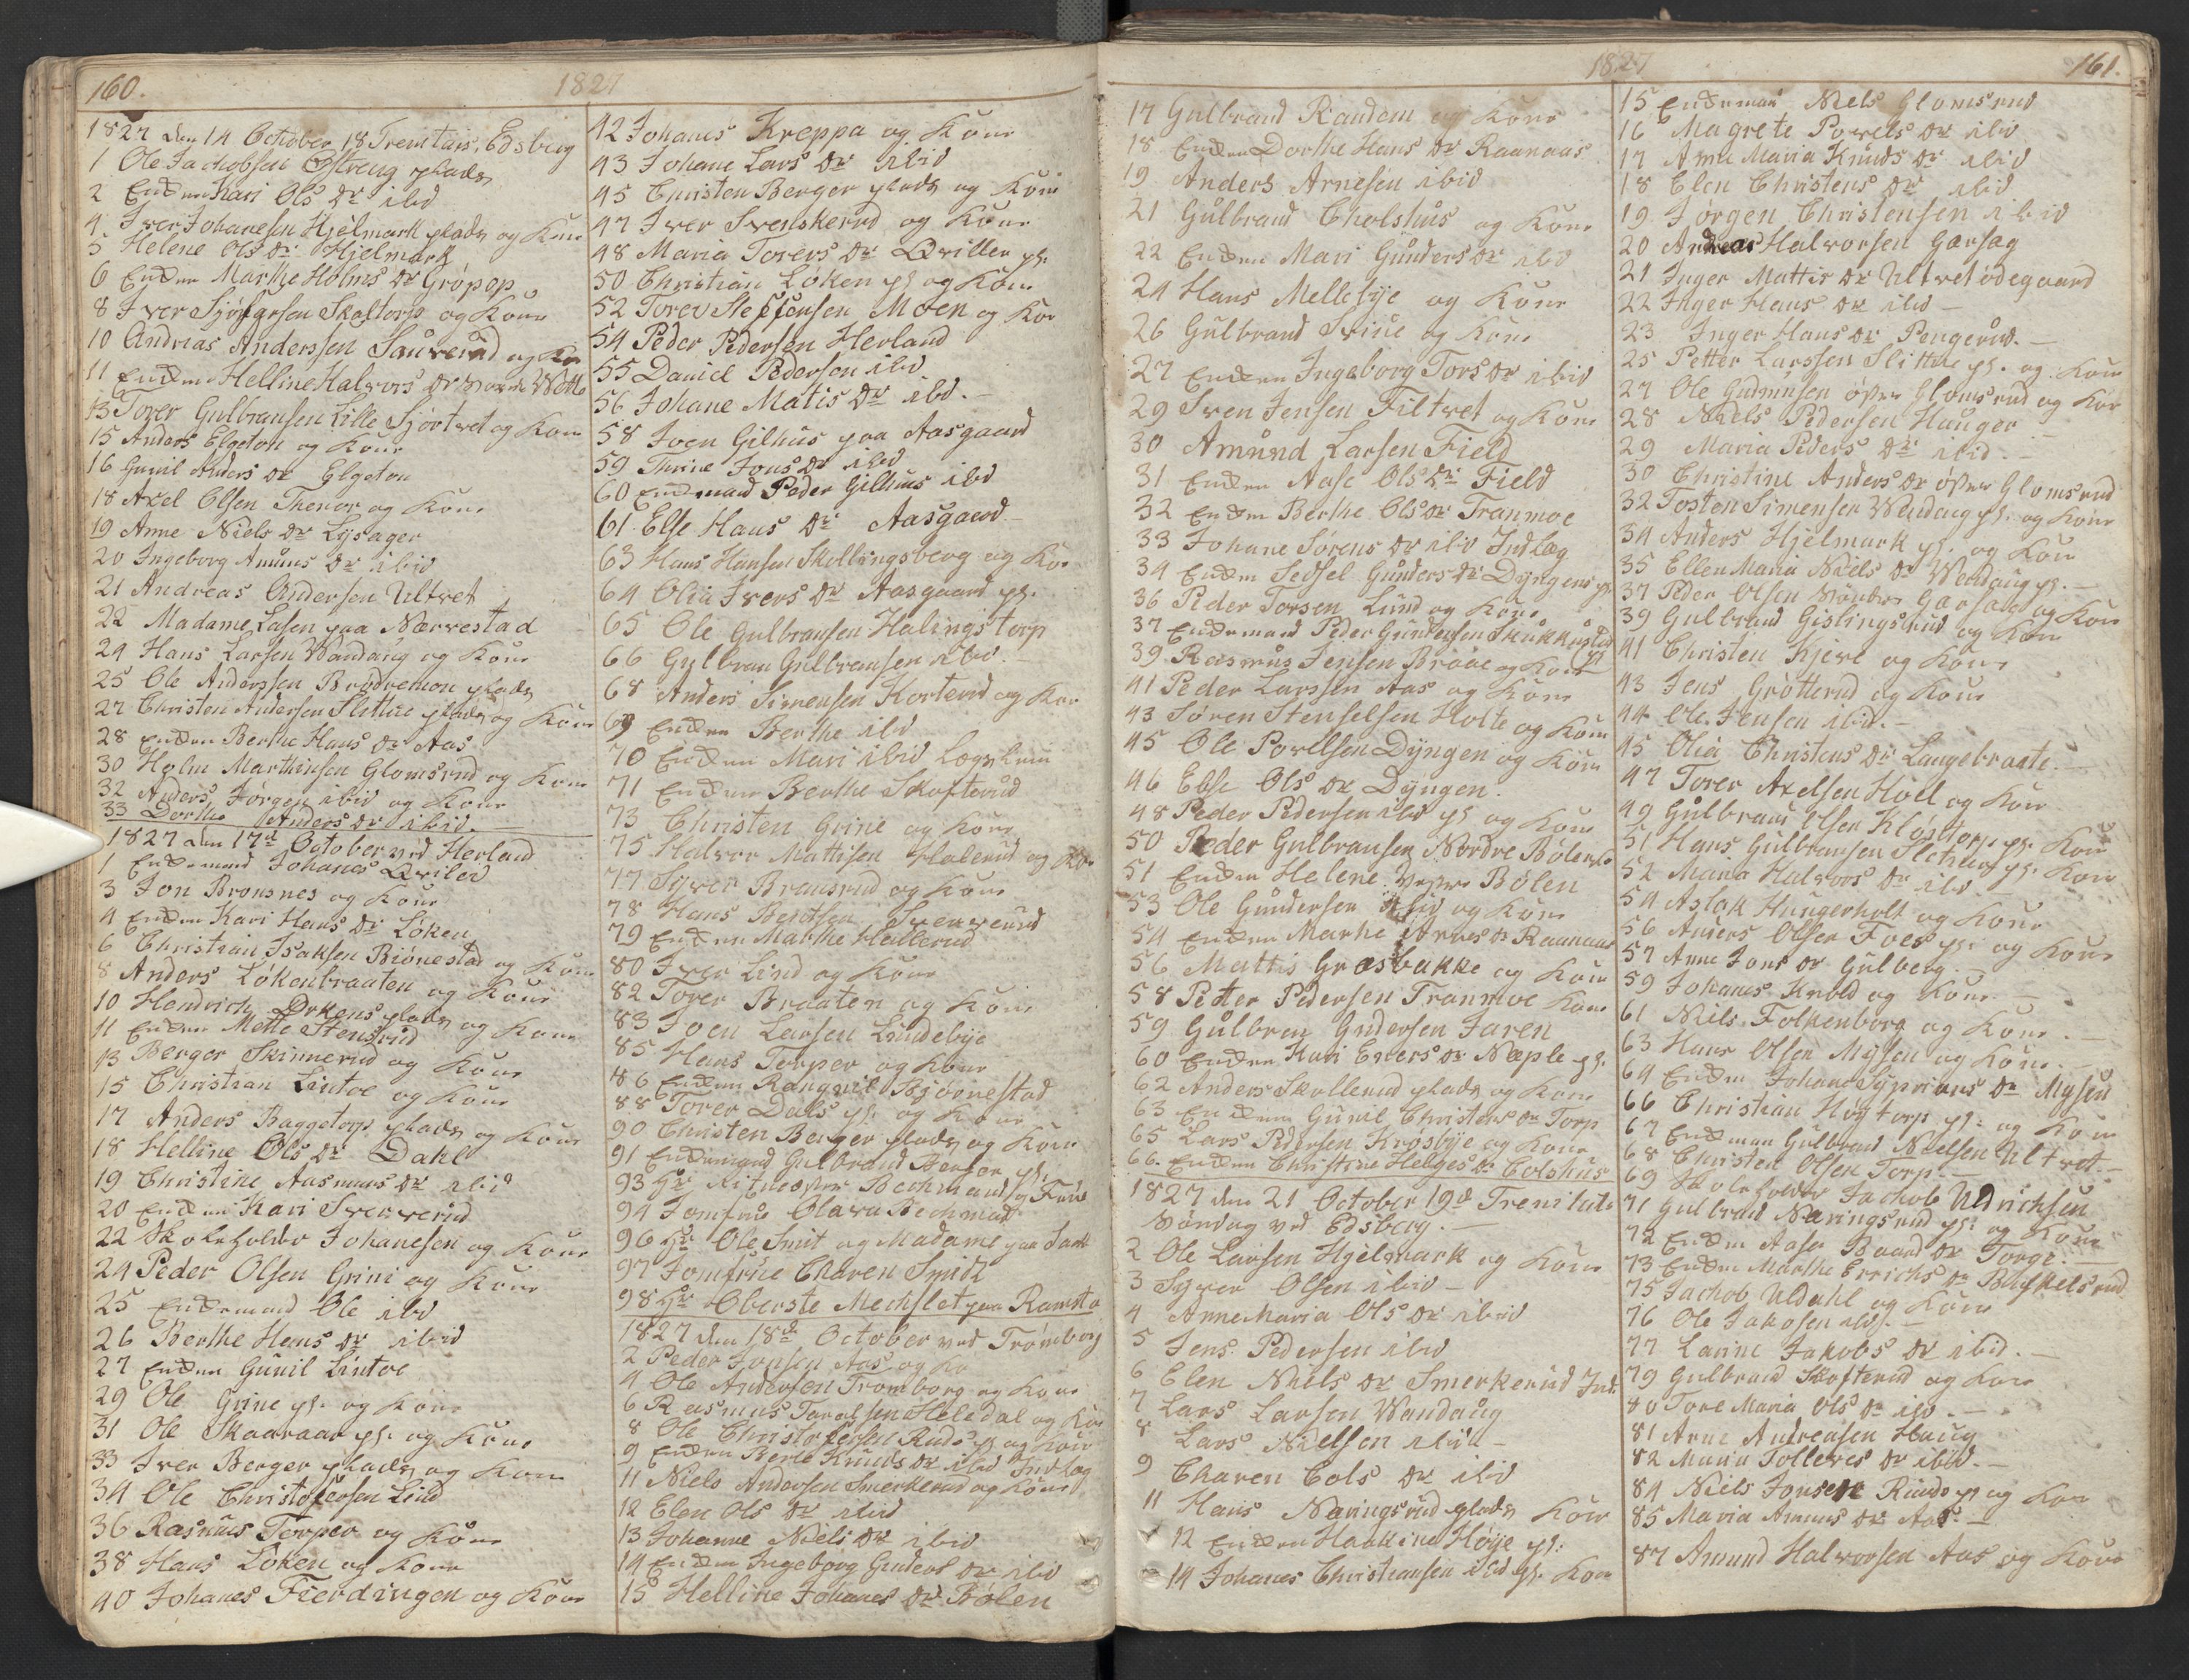 160.
1827
1827 den 14 October 18 Trenitais. Edsberg
1 Ole Jachobsen Østreng plads
2 Enken Kari Ols Dr ibid
4 Iver Johanesen Hjelmark plads og Kone
5 Helene Ols Dr Hjelmark
6 Enken Marthe Holms Dr Grøpop
8 Iver Skaltorp og Kone
10 Andrias Anderssen Saüverud og Kon
11 Enken Helline Halvors Dr
13 Torer Gulbransen Lille Sjørtvet og Kone
15 Anders Elgeton og Kone
16 Gunil Anders Dr Elgeton
18 Axel Olsen Thenor og Kone
19 Anne Niels Dr Lysager
20 Ingeborg Amüns Dr ibid
21 Andreas Andersen Ultvet
22 Madame Lasen paa Nærrestad
24 Hans Larsen Wandaug og Kone
25 Ole Anderssen Brødremon plads
27 Christen Andersen Slettue plads og Kone
28 Enken Berthe Hans Dr Aas
30 Holm Marthinsen Glomsrud og Kone
32 Anders Jørgen ibid og Kone
33 Dorthe Anders Dr ibid.
1827 den 17de October ved Herland
1 Enkemand Johanes Qviler
3 Jon Bronsnes og Kone
4 Enken Kari Hans Dr Løken
6 Christian Isaksen Biønestad og Kone
8 Anders Løkenbraaten og Kone
10 Hendrich Ørkens plads og Kone
11 Enken Mette Stensrud
13 Berger Skinnerud og Kone
15 Christian Lintoe og Kone
17 Anders Baggetorp plads og Kone
18 Helline Ols Dr Dahl
19 Christine Aasmuns Dr ibid
20 Enken Kari Sververud
22 Skoleholder Johanesen og Kone
24 Peder Olsen Grini og Kone
25 Enkemand Ole ibid
26 Berthe Hans Dr ibid
27 Enken Gunil Lintoe
29 Ole Grine ps. og Kone
31 Ole Skaaraar ps. og Kone
33 Iver Berger plads og Kone
34 Ole Christofersen Lind
36 Rasmus Torper og Kone
38 Hans Løken og Kone
40 Johanes Fierdingen og Kone
42 Johanes Kreppa og Kone
43 Johane Lars Dr ibid
45 Christen Berger plads og Kone
47 Iver Svenskerud og Kone
48 Maria Torers Dr Qviller ps.
50 Christian Løken ps og Kone
52 Torer Steffensen Moen og Kon
54 Peder Pedersen Herland
55 Daniel Pedersen ibid
56 Johane Matis Dr ibd.
58 Joen Gilhus paa Aasgaard
59 Thrine Jons Dr ibid
60 Enkmand Peder Gilhus ibd
61 Else Hans Dr Aasgaard
63 Hans Hansen Skillingsberg og Kon
64 Olia Ivers Dr Aasgaard ps.
65 Ole Gulbransen Halingstorp
66 Gulbran Gulbransen ibd.
68 Anders Simensen Korterud og Kon
69 Enken Berthe ibid
70 Enken Mari ibid Lægslem
71 Enken Berthe Skofterud
73 Christen Grine og Kone
75 Halvor Mattisen Halerud og Kon
77 Syver Bransrud og Kone
78 Hans Berdtsen Sververud
79 Enken Marthe Hallerud
80 Iver Lind og Kone
82 Torer Braaten og Kone
83 Joen Larsen Lundebye
85 Hans Torper og Kone
86 Enken Rangnil Bjørnestad
88 Torer Dals ps. og Kone
90 Christen Berger plads og Kone
91 Enkemand Gulbrand Berger ps.
93 Hr Ritmester Bechmand og Frue
94 Jomfrue Olava Bechmad
96 Hr Ole Smit og Madame paa
97 Jomfrue Charen Smidt
98 Hr Oberste Mechlet paa Ramsta
1827 den 18de October ved Trømborg
2 Peder Jonsen Aas og Ko
4 Ole Andersen Tromborg og Kone
6 Rasmus Taralsen Heledal og Kon
8 Ole Christofersen Ruds ps og Kone
9 Enken Berte Knuds Dr ibid Indlag
11 Niels Andersen Smerkerud og Kone
12 Elen Ols Dr ibid
13 Johanne Niels Dr ibid
14 Enken Ingeborg Gudens Dr ibid
15 Helline Johanes Dr Bølen
1827
161.
17 Gulbrand Randem og Kone
18 Enken Dorthe Hans Dr Raanaas
19 Anders Arnesen ibid
21 Gülbrand Cholshüs og Kone
22 Enken Mari Günders Dr ibid
24 Hans Mellebye og Kone
26 Gulbrand og Kone
27 Enken Ingeborg Tors Dr ibid
29 Sven Jensen Filtvet og Kone
30 Amünd Larsen Field
31 Enken Aase Ols Dr Field
32 Enken Berthe Ols Dr Tranmoe
33 Johane Sørens Dr ibid Indlag
34 Enken Sedsel Günders Dr Dyngens ps.
36 Peder Torsen Lund og Kone
37 Enkemand Peder Gundersen
39 Rasmus Jensen Braae og Kone
41 Peder Larssen Aas og Kone
43 Søren Stenselsen Holte og Kone
45 Ole Povelsen Dyngen og Kone
46 Else Ols Dr Dyngen.
48 Peder Pedersen ibid ps og Kone
50 Peder Gulbransen Nordre Bølen
51 Enken Helene Vestre Bølen
53 Ole Gundersen ibid og Kone
54 Enken Marthe Arnes Dr Raanaas
56 Mattis Græsbakke og Kone
58 Petter Pedersen Tranmoe Kone
59 Gulbran Gudersen Jaren
60 Enken Kari Eners Dr Næple ps.
62 Anders Skollerud plads og Kone
63 Enken Gunil Christens Dr Torp
65 Lars Pedersen Krosbye og Kone
66. Enken Christine Helges Dr Colshus
1827 den 21 October 19de Trenitatis
Søndag ved Edsberg.
2 Ole Larsen Hjelmark og Kone
3 Syver Olsen ibid
4 Anne Maria Ols Dr ibid
5 Jens Pedersen ibid
6 Elen Niels Dr Smerkerud Ind.
7 Lars Larsen Wandaug
8 Lars Nielsen ibid
9 Charen Cols Dr ibid
11 Hans Naringsrud plads Kone
12 Enken Haakine Høye ps.
14 Johanes Christiansen ibid ps. Kone
15 Enkemand Niels Glomsrud
16 Magrete Powels Dr ibid
17 Anne Maria Knuds Dr ibid
18 Elen Christens Dr ibid
19 Jørgen Christensen ibid
20 Andreas Halvorsen Gaarsag
21 Inger Mattis Dr Ultvetødegaard
22 Inger Hans Dr ibid
23 Inger Hans Dr Pengerud.
25 Petter Larssen Slittue ps. og Kone
27 Ole Gudmunsen øster Glomsrud og Kon
28 Niels Pedersen Hauger
29 Maria Peders Dr ibid.
30 Christine Anders Dr øster Glomsrud
32 Tosten Simensen Wendaug ps. og Kone
34 Anders Hjelmark ps. og Kone
35 Ellen Maria Niels Dr Wendaug ps.
37 Peder Olsen Søndre Gaarsag og Kone
39 Gulbrand Gislingsrud og Kone
41 Christen Kjeve og Kone
43 Jens Grøtterud og Kone
44 Ole Jensen ibid.
45 Olia Christens Dr Langebraate.
47 Torer Axelsen Hoel og Kone
49 Gulbrand Olsen Kløsttorp ps. Kone
51 Hans Gulbransen ps. Kone
52 Maria Halvors Dr ibd
54 Aslak Hungerholt og Kone
56 Anders Olsen Foes ps. og Kone
57 Anne Jons Dr Gulberg.
59 Johanes Krold og Kone.
61 Niels Folkenborg og Kone
63 Hans Olsen Mysen og Kone.
64 Enken Johane Syprians Dr Mysen
66 Christian Høytorp ps. og Kone
67 Enkman Gulbrand Nielsen Ultvet.
68 Christen Olsen Torp.
69 Skoleholder Jachob Uldrichsen
71 Gulbrand Naringsrud ps. og Kone
72 Enken Aase Baard Dr Torge.
73 Enken Marthe Errichs Dr
75 Jachob Uldahl og Kone
76 Ole Jakobsen ibid.
77 Larine Jakobs Dr ibid.
79 Gulbrand Skofterud og Kone
80 Tore Maria Ols Dr ibd.
81 Arne Andreasen Haug
82 Maria Tollevs Dr ibid.
84 Niels Jonsen Ruds ps og Kone
85 Maria Amuns Dr Aas.
87 Amund Halvorsen Aas og Kone